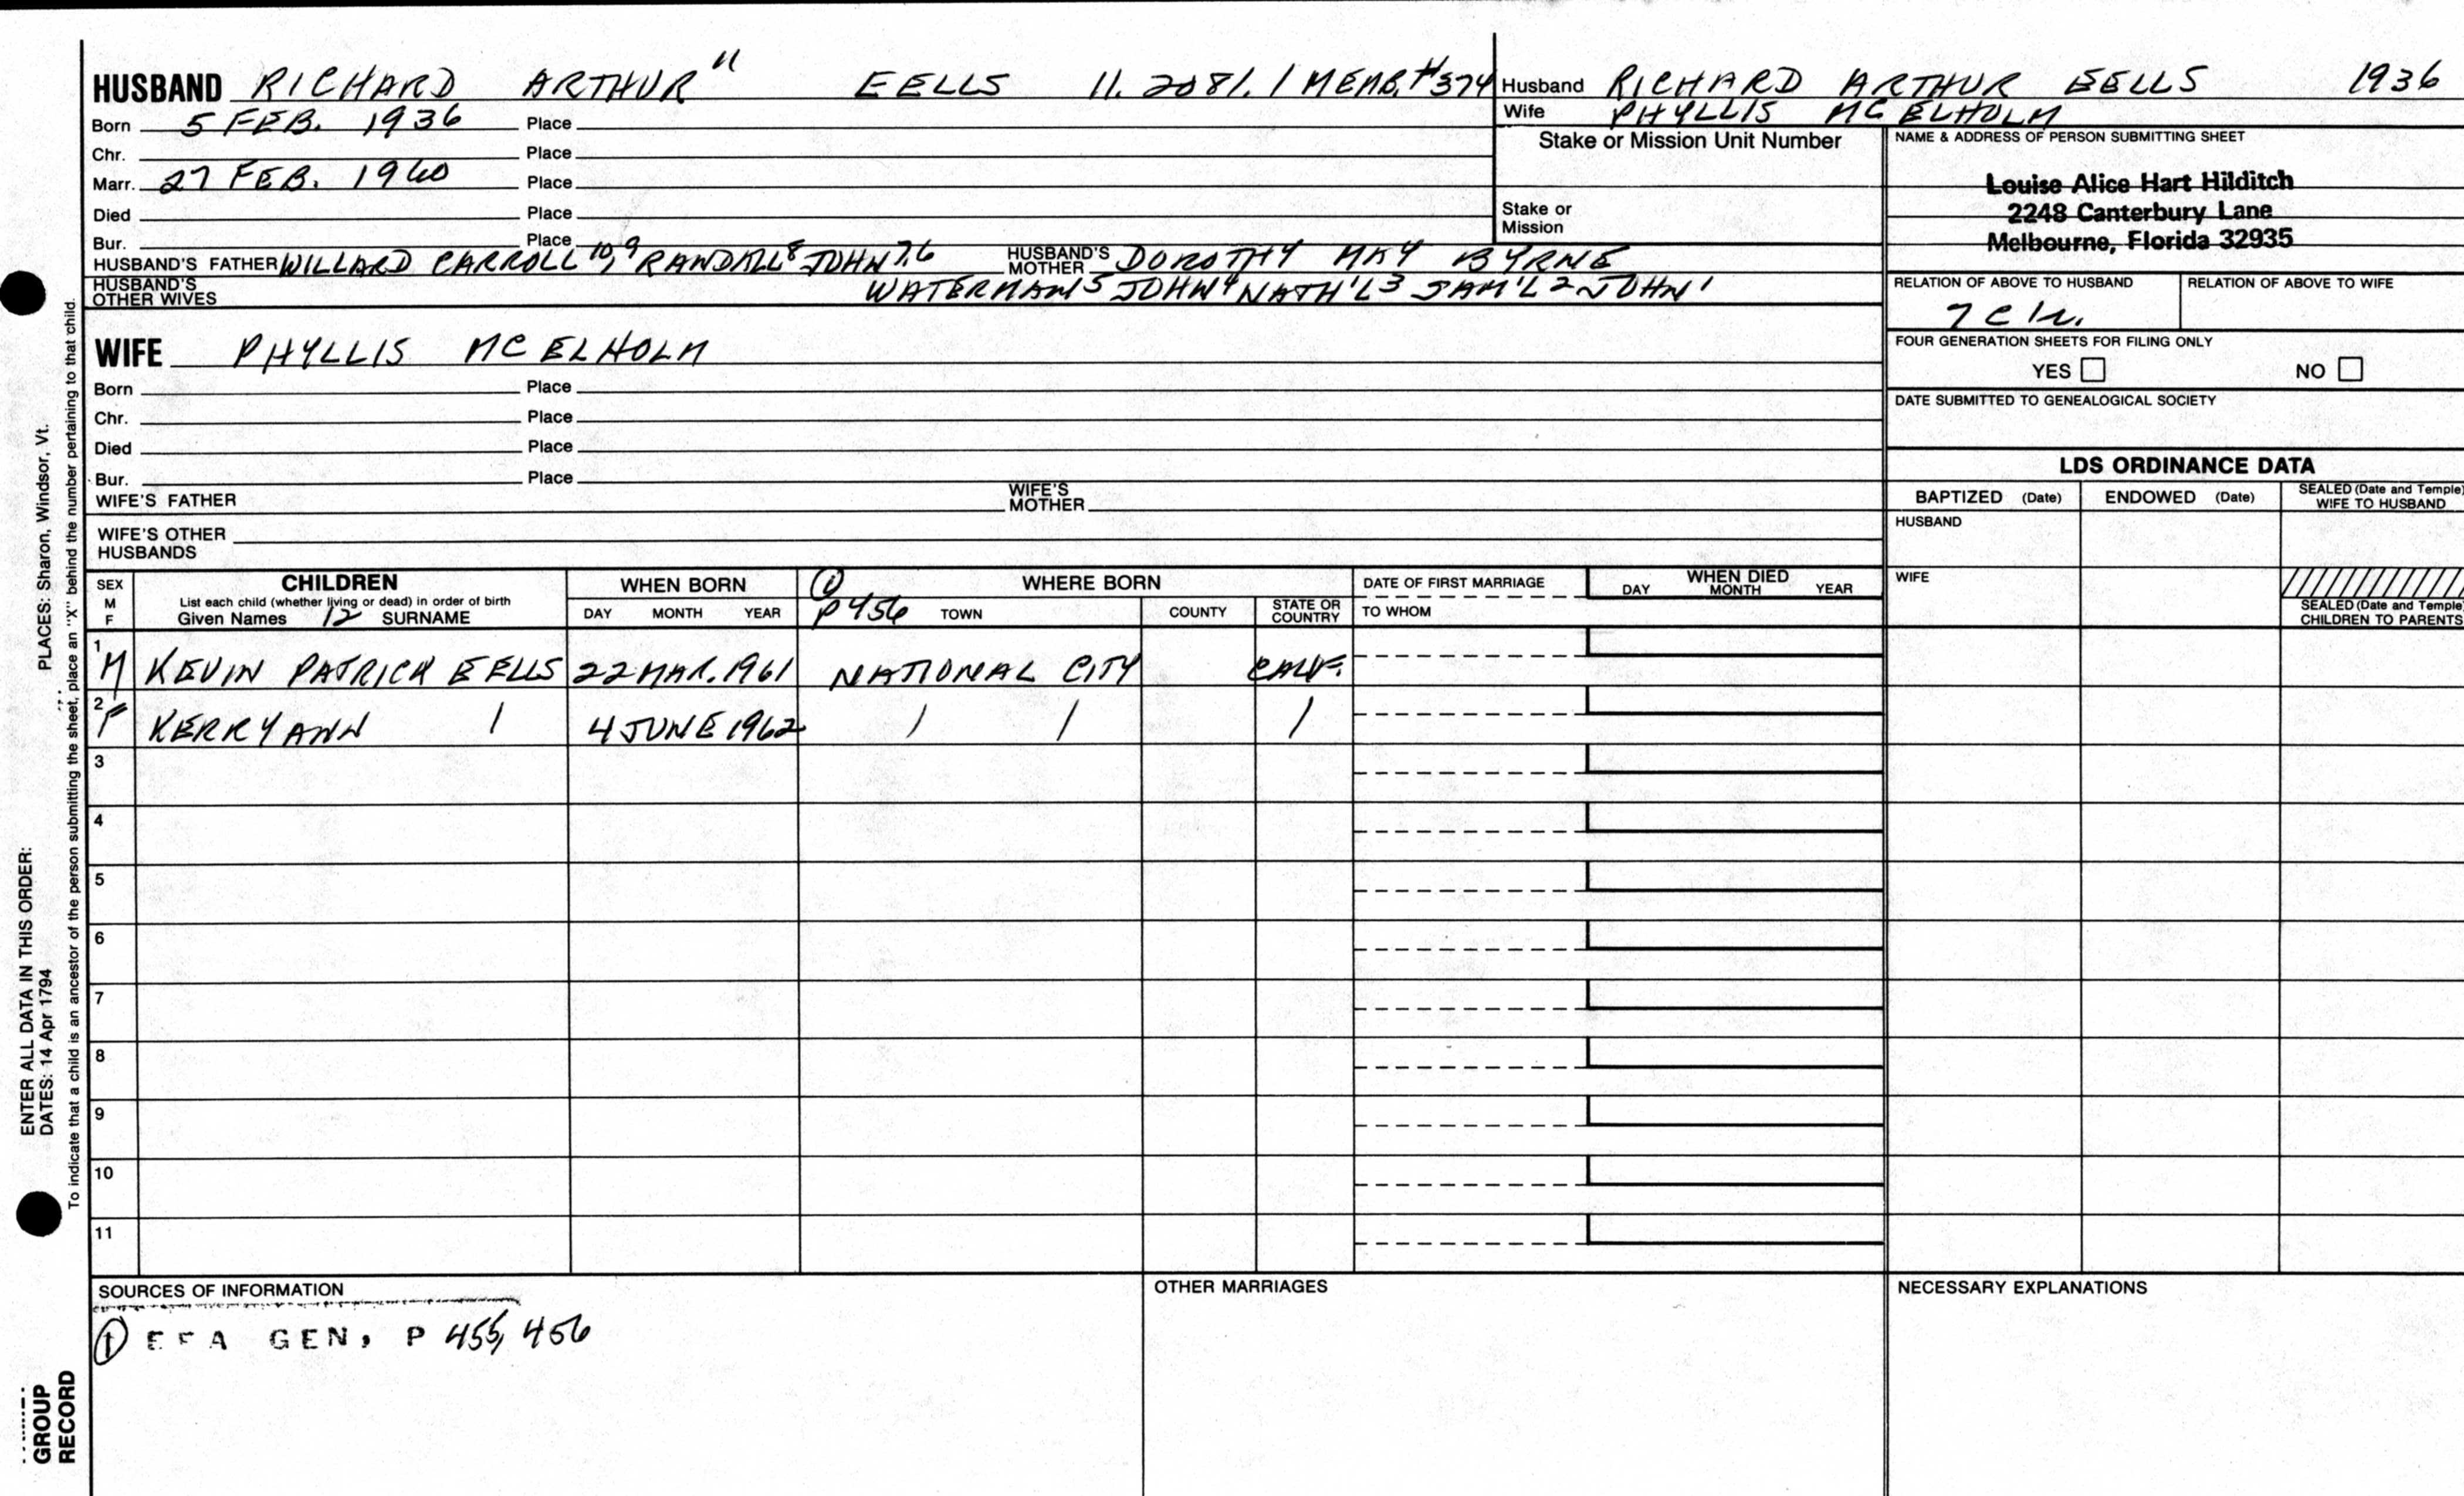 HUSBAND RICHARD ARTHUR 11 EELLS 11.2081.1 MEMB.#374
Born 5 FEB. 1936 Place
Chr. Place
Marr. 27 FEB. 1960 Place
Died Place
Bur. Place
HUSBAND'S FATHER WILLARD CARROLL 10,9 RANDALL 8 JOHN 7,6 HUSBAND'S MOTHER DOROTHY MAY BYRNE
HUSBAND'S OTHER WIVES WATERMAN 5 JOHN 4 NATH'L 3 SAM'L 2 JOHN 1
Husband RICHARD ARTHUR EELLS 1936
Wife PHYLLIS MC ELHOLM
Stake or Mission Unit Number
Stake or
Mission
NAME & ADDRESS OF PERSON SUBMITTING SHEET
Louise Alice Hart Hilditch
2248 Canterbury Lane
Melbourne, Florida 32935
RELATION OF ABOVE TO HUSBAND RELATION OF ABOVE TO WIFE
FOUR GENERATION SHEETS FOR FILING ONLY
YES NO
DATE SUBMITTED TO GENEALOGICAL SOCIETY
WIFE PHYLLIS MC ELHOLM
Born Place
Chr. Place
Died Place
Bur. Place
WIFE'S FATHER WIFE'S MOTHER
WIFE'S OTHER
HUSBANDS
LDS ORDINANCE DATA
BAPTIZED (Date) ENDOWED (Date) SEALED (Date and Temple) WIFE TO HUSBAND
HUSBAND
WIFE
SEALED (Date and Temple)
CHILDREN TO PARENTS
SEX
M
F
CHILDREN
List each child (whether living or dead) in order of birth
Given Names 12 SURNAME
WHEN BORN
DAY MONTH YEAR
1 WHERE BORN
P 456 TOWN COUNTY STATE OR COUNTRY
DATE OF FIRST MARRIAGE
TO WHOM
WHEN DIED
DAY MONTH YEAR
1 M KEVIN PATRICK EELLS 22 MAR. 1961 NATIONAL CITY CALIF.
2 F KERRY ANN / 4 JUNE 1962 / / /
3
4
5
6
7
8
9
10
11
SOURCES OF INFORMATION
1 EFA GEN, P 455, 456
OTHER MARRIAGES
NECESSARY EXPLANATIONS
ENTER ALL DATA IN THIS ORDER:
DATES: 14 Apr 1794 PLACES: Sharon, Windsor, Vt.
To indicate that a child is an ancestor of the person submitting the sheet, place an "X" behind the number pertaining to that child.
GROUP
RECORD